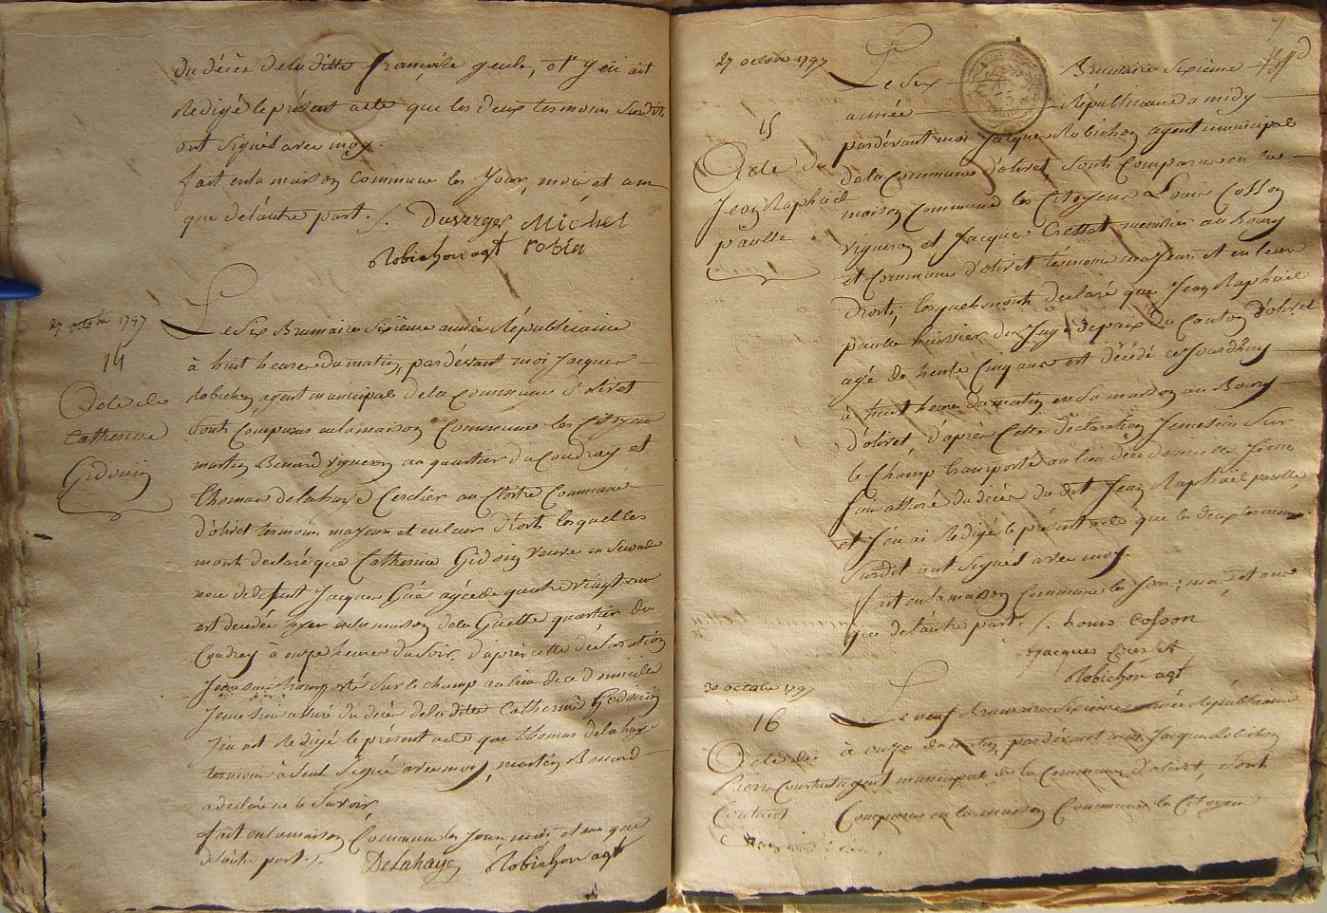 du décès de la ditte Françoise geule, et j'en ait
Redigé le présent acte que les deux tesmoins Susdit
ont Signés avec moy.
fait en la maison commune les Jour, mois et an
que de l'autre part. Duverger Michel
Robichon agt robin
27 octobre 1797
14
Acte de
Catherine
Gidouin
Le Six Brumaire Sixieme année Républicaine
à huit heures du matin, pardevant moi Jacques
Robichon agent municipal de la Commune d'olivet
Sont Comparus en la maison Commune les Citoyens
martin Benard vigneron au quartier du Coudray et
Thomas delahaye Cerclier au Cloitre Commune
d'olivet tesmoins majeurs et en leur Droits lesquelles
mont declaré que Catherine Gidouin veuve en Seconde
noce de defunt Jacques agée de quatre vingt un
ans decedée hyer en la maison de la Guette quartier du
Coudray à onze heures du Soir, d'après cette déclaration
Je me suis transporté Sur le champ au lieu de ce domicile
Je me Suis assuré du décès de la ditte Catherine Gidouin
J'en ait Redigé le présent acte que Thomas delahaye
tesmoin à Seul Signé avec moy, martin Benard
a déclaré ne le Savoir
fait en la maison Commune les Jour mois et an que
de l'autre part. DeLahaye Robichon agt
27 octobre 1797
15
Acte de
Jean Raphaël
paulle
Le Six Brumaire Sixième
année Républicaine a midy
pardevant moi Jacques Robichon agent municipal
de la Commune d'olivet Sont Comparus en la
maison Commune les Citoyens Louis Cosson
vigneron et Jacques Crettet menuisier au bourg
et Commune d'olivet tesmoins majeurs et en leur
Droits, lesquels mont declaré que Jean Raphaël
paulle huissier du Juge de paix du Canton d'olivet
agé de trente Cinq ans est décédé ce Jourd'huy
à huit heures du matin en Sa maison au Bourg
d'olivet, d'après Cette déclaration Je me suis Sur
le Champ transporté au lieu de ce domicille, Je me
Suis assuré du décès du dit Jean Raphaël paulle
et J'en ai Redigé le présent acte que les deux tesmoins
Susdit ont Signés avec moy
fait en la maison Commune les Jour, mois et an
que de l'autre part. Louis Cosson
Jacques Crettet
Robichon agt
30 octobre 1797
16
Acte de
Pierre
Coutant
Le neuf Brumaire Sixième année Républicaine
à onze du matin, pardevant moi Jacques Robichon
agent municipal de la Commune d'olivet, Sont
Comparus en la maison Commune les Citoyens